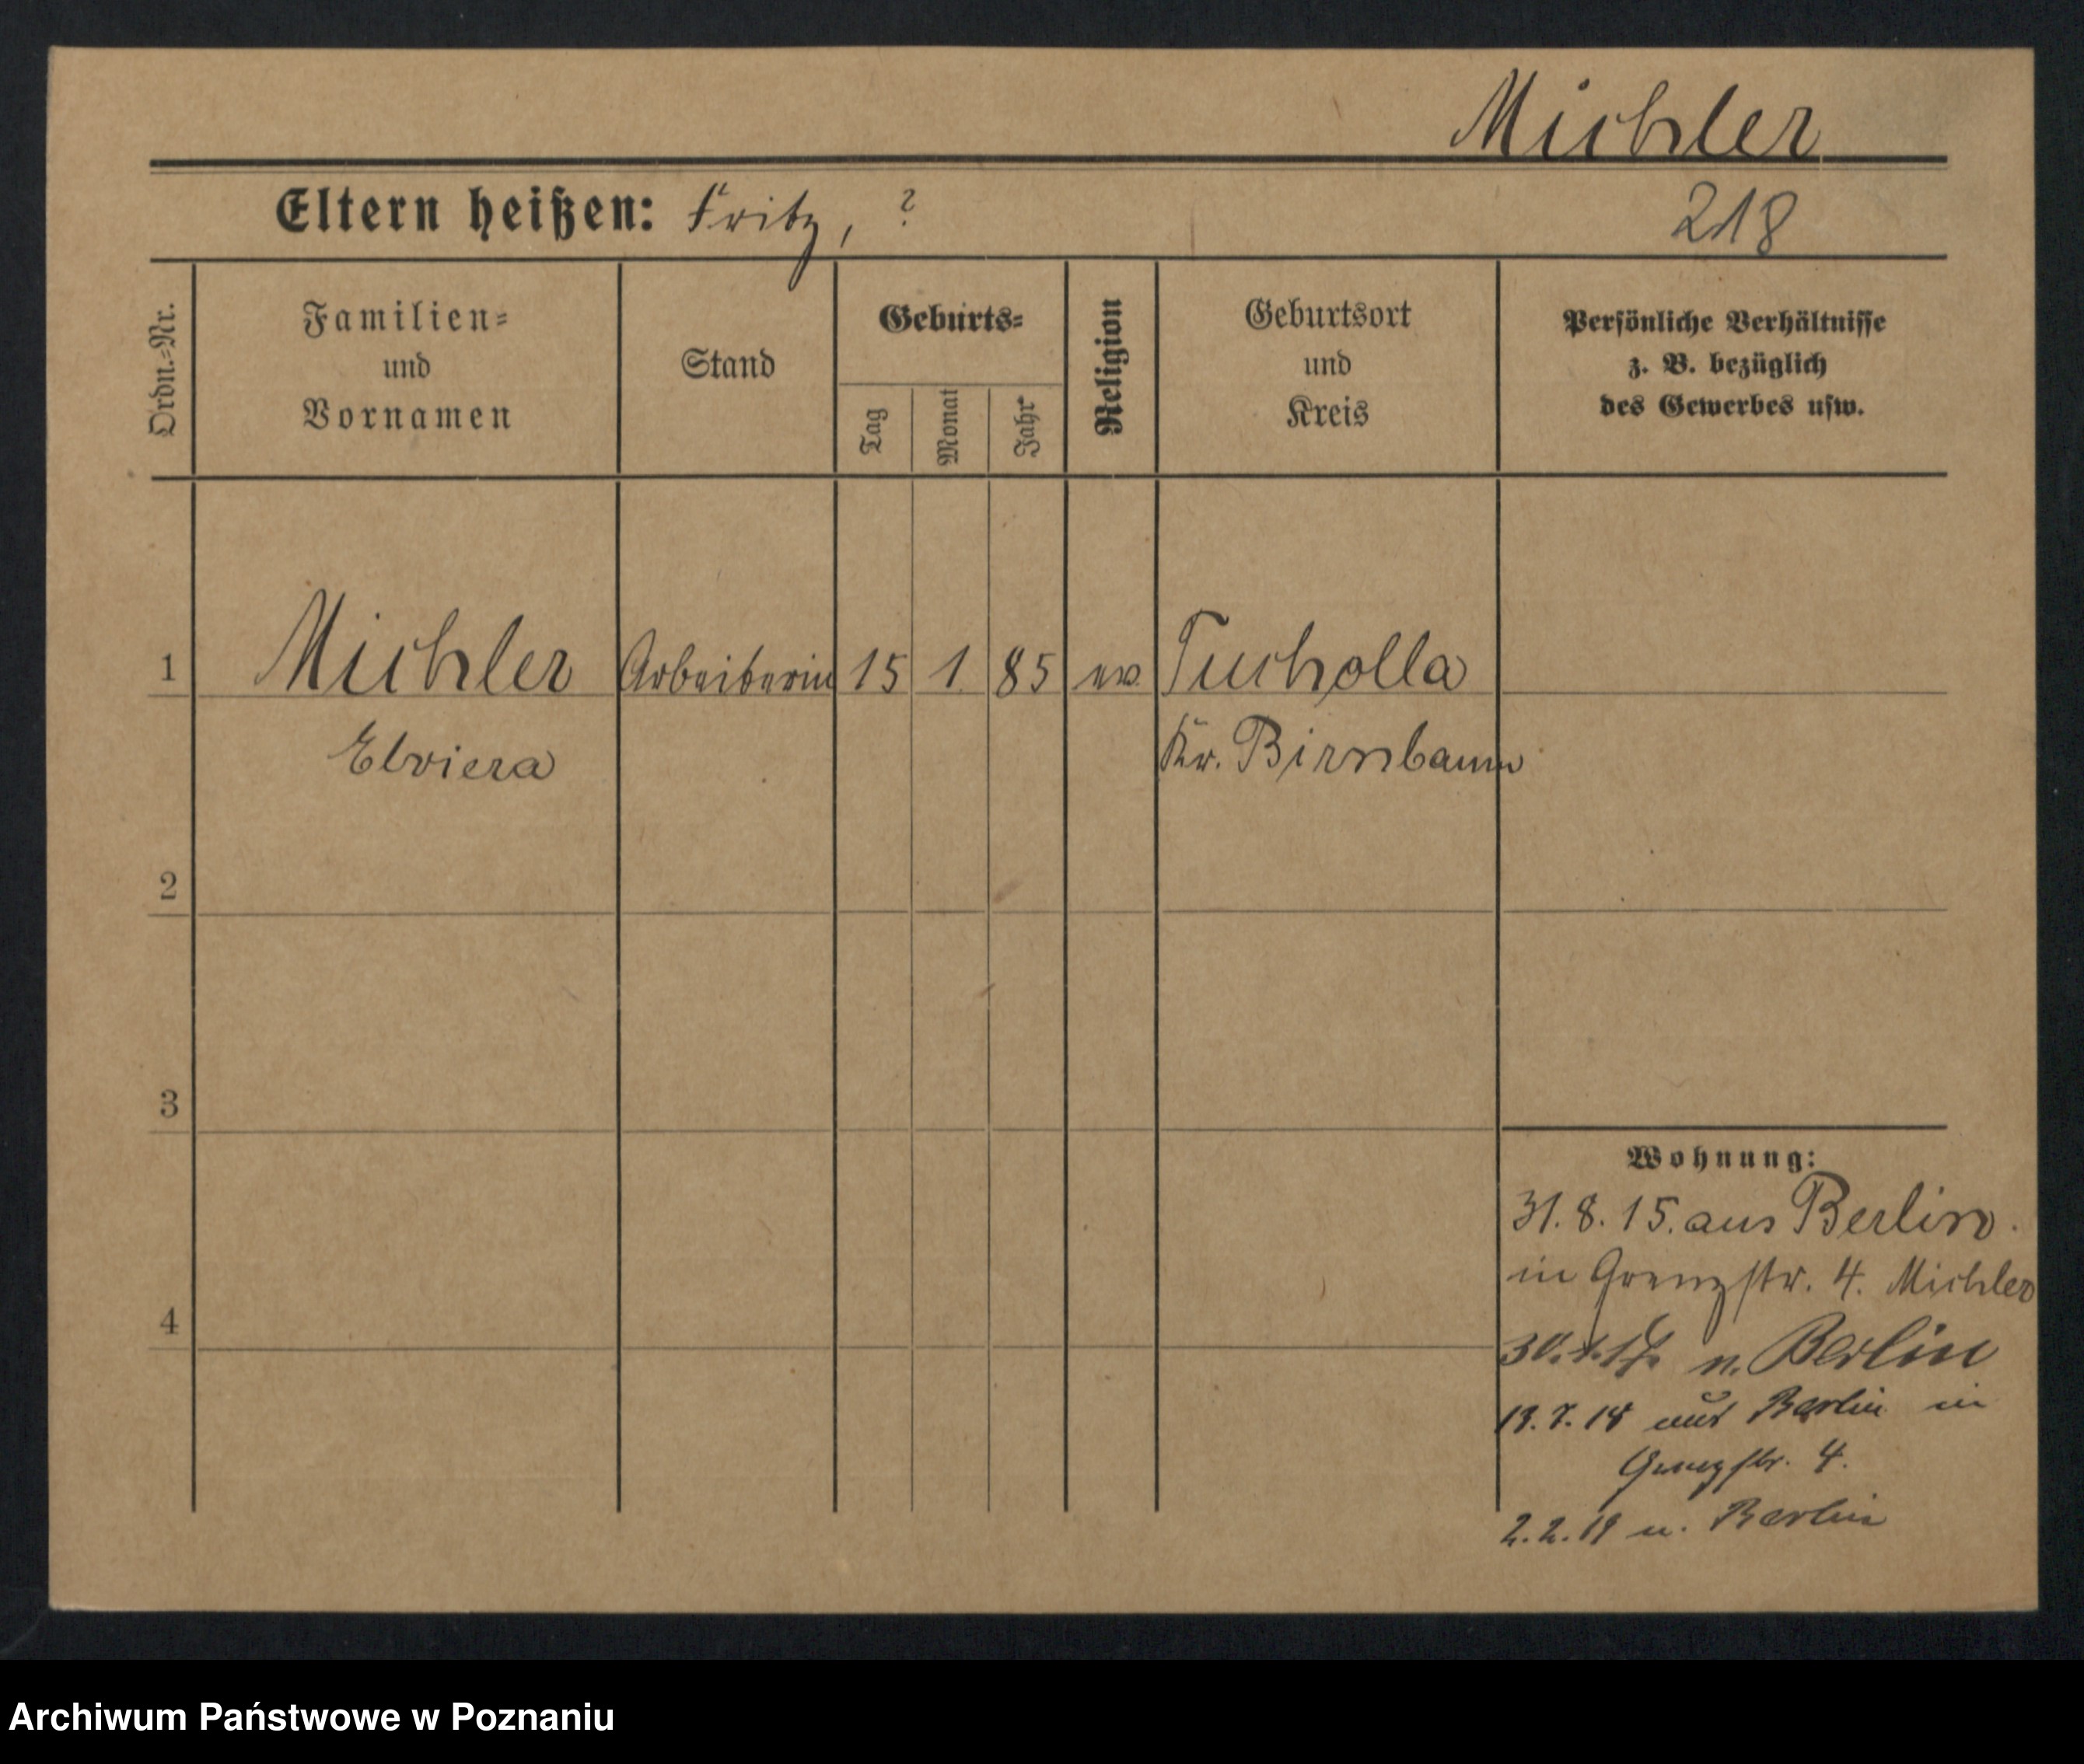 Michler
Eltern heißen: Fritz, ?
218
Ordn.-Nr.
Familien-
und
Vornamen
Stand
Geburts-
Tag
Monat
Jahr
Religion
Geburtsort
und
Kreis
Persönliche Verhältnisse
z. B. bezüglich
des Gewerbes usw.
1 Michler Arbeiterin 15 1. 85 ev. Tucholla
Elviera Kr. Birnbaum
2
3
4
Wohnung:
31. 8. 15. aus Berlin.
in Grenzstr. 4. Michler
n. Berlin
aus Berlin in
Grenzstr. 4.
2. 2. 19 n. Berlin
Archiwum Państwowe w Poznaniu